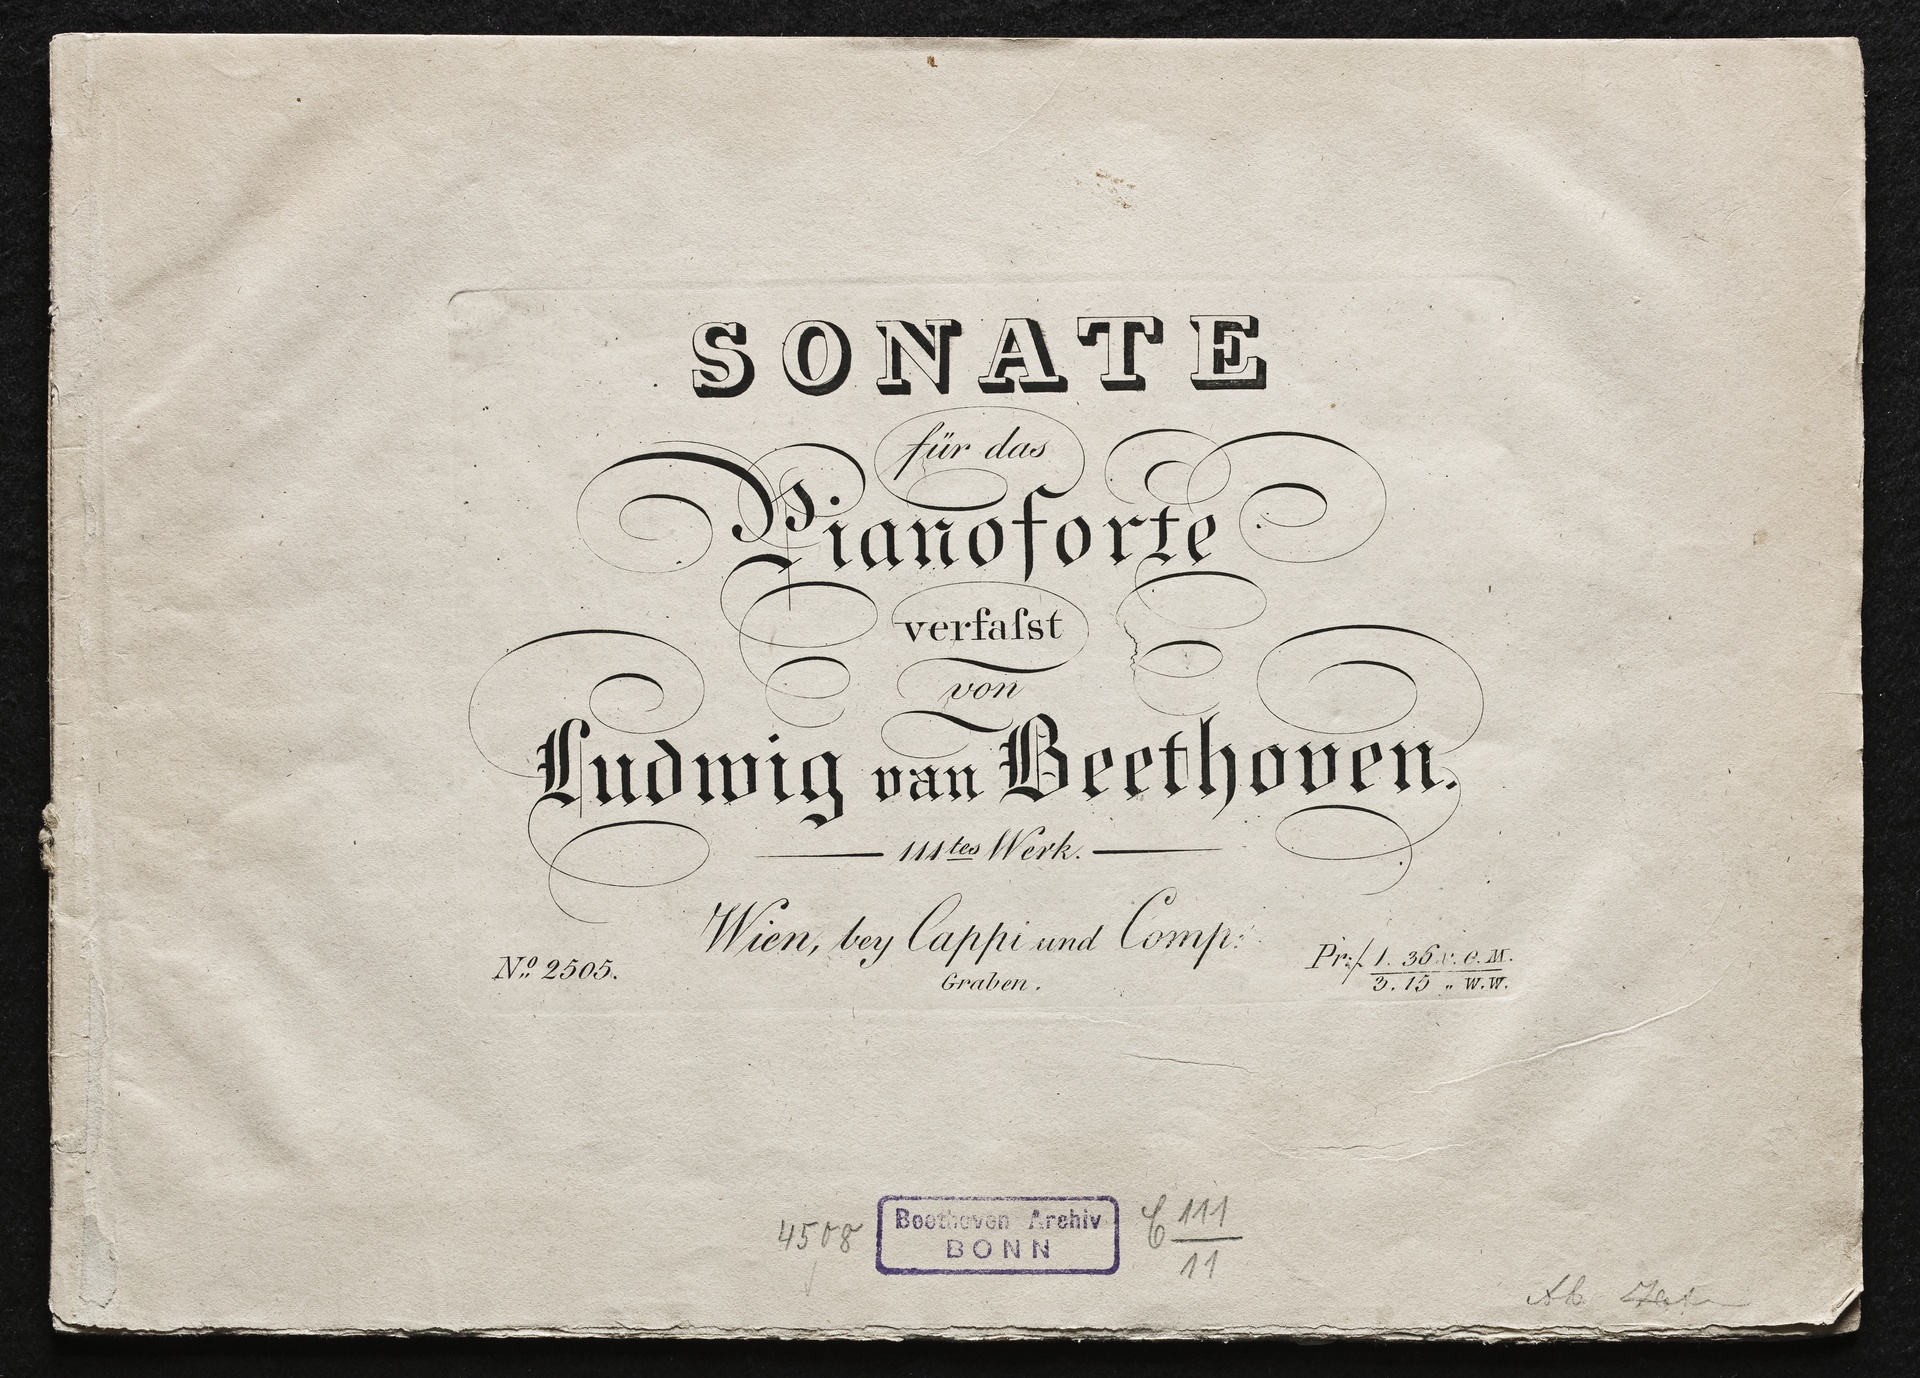 SONATE
für das
Pianoforte
verfaſst
von
Ludwig van Beethoven.
111tes Werk.
Wien, bey Cappi und Comp:
Graben.
No. 2505.
Pr: f 1. 36 x. C.M.
3. 15 " W.W.
4508
Beethoven Archiv
BONN
C 111
11